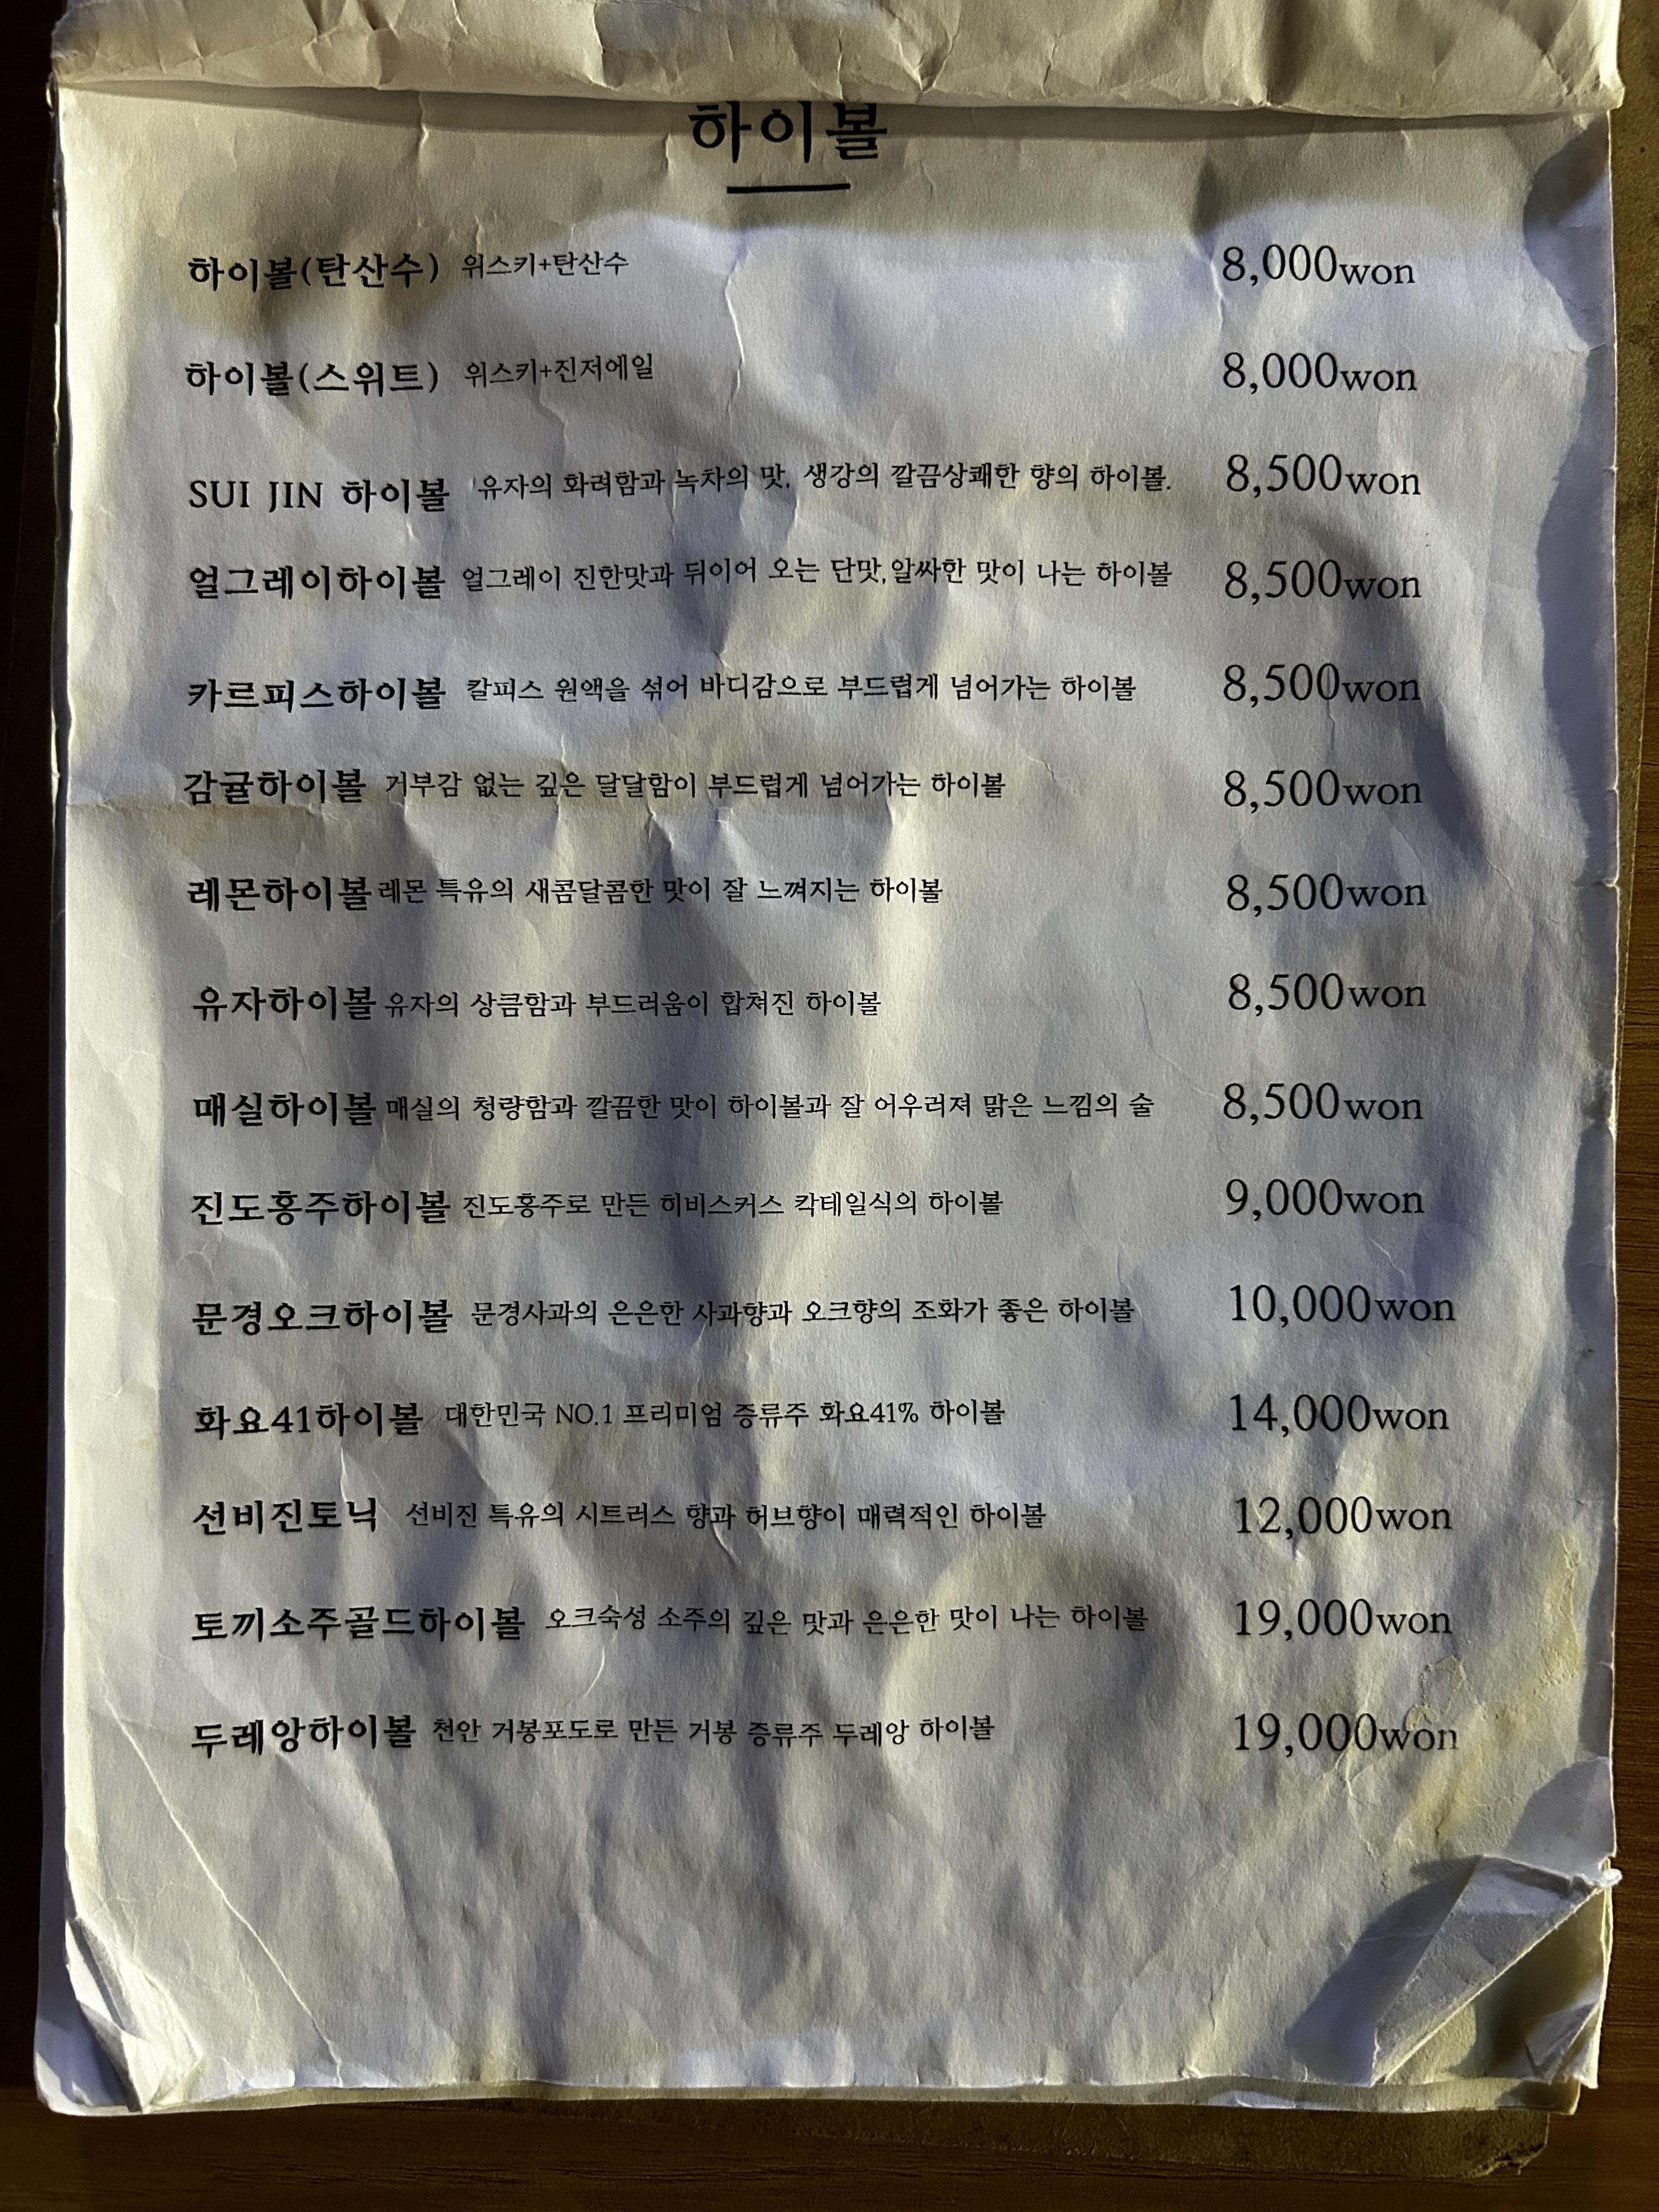 하이볼
하이볼(탄산수) 위스키+탄산수 8,000won
하이볼(스위트) 위스키+진저에일 8,000won
SUI JIN 하이볼 유자의 화려함과 녹차의 맛, 생강의 깔끔상쾌한 향의 하이볼. 8,500won
얼그레이하이볼 얼그레이 진한맛과 뒤이어 오는 단맛,알싸한 맛이 나는 하이볼 8,500won
카르피스하이볼 칼피스 원액을 섞어 바디감으로 부드럽게 넘어가는 하이볼 8,500won
감귤하이볼 거부감 없는 깊은 달달함이 부드럽게 넘어가는 하이볼 8,500won
레몬하이볼 레몬 특유의 새콤달콤한 맛이 잘 느껴지는 하이볼 8,500won
유자하이볼 유자의 상큼함과 부드러움이 합쳐진 하이볼 8,500won
매실하이볼 매실의 청량함과 깔끔한 맛이 하이볼과 잘 어우러져 맑은 느낌의 술 8,500won
진도홍주하이볼 진도홍주로 만든 히비스커스 칵테일식의 하이볼 9,000won
문경오크하이볼 문경사과의 은은한 사과향과 오크향의 조화가 좋은 하이볼 10,000won
화요41하이볼 대한민국 NO.1 프리미엄 증류주 화요41% 하이볼 14,000won
선비진토닉 선비진 특유의 시트러스 향과 허브향이 매력적인 하이볼 12,000won
토끼소주골드하이볼 오크숙성 소주의 깊은 맛과 은은한 맛이 나는 하이볼 19,000won
두레앙하이볼 천안 거봉포도로 만든 거봉 증류주 두레앙 하이볼 19,000won